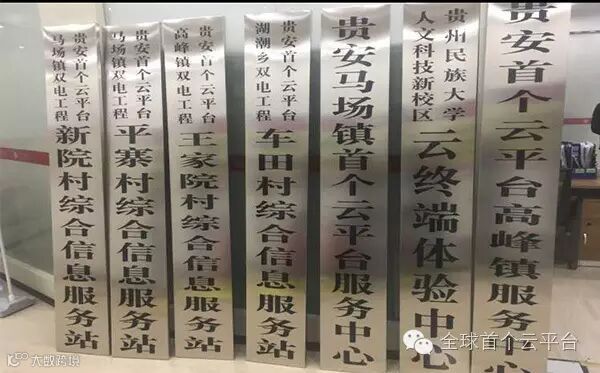 贵安首个云平台
马场镇双电工程
新院村综合信息服务站
贵安首个云平台
马场镇双电工程
平寨村综合信息服务站
贵安首个云平台
高峰镇双电工程
王家院村综合信息服务站
贵安首个云平台
湖潮乡双电工程
车田村综合信息服务站
贵安马场镇首个云平台服务中心
贵州民族大学
人文科技新校区
云终端体验中心
贵安首个云平台高峰镇服务中心
全球首个云平台
大数跨境